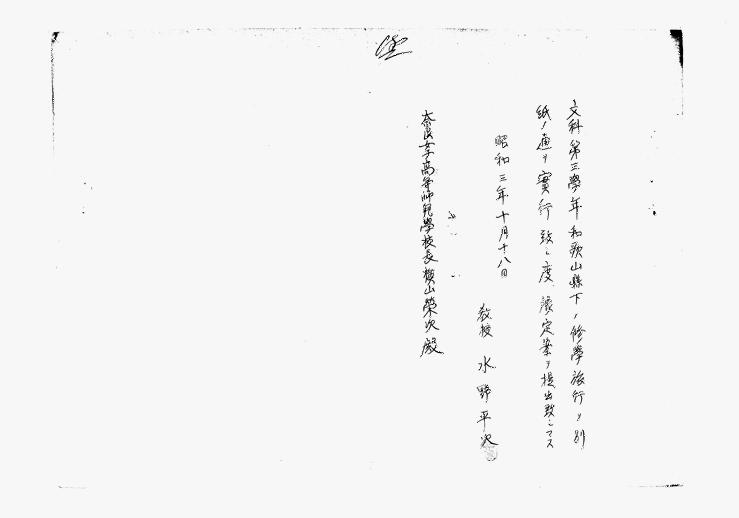 文科第三學年和歌山縣下ノ修學旅行ヲ別
紙ノ通リ實行致シ度 豫定案ヲ提出致シマス
昭和三年十月十八日
教授 水野平次
奈良女子高等師範學校長 横山榮次殿